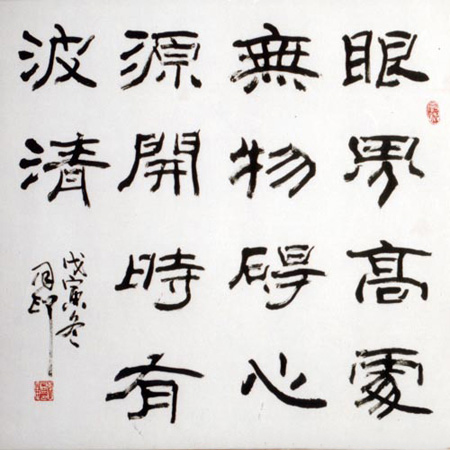 眼界高處
無物碍心
源開時有
波清
戊寅冬
月印